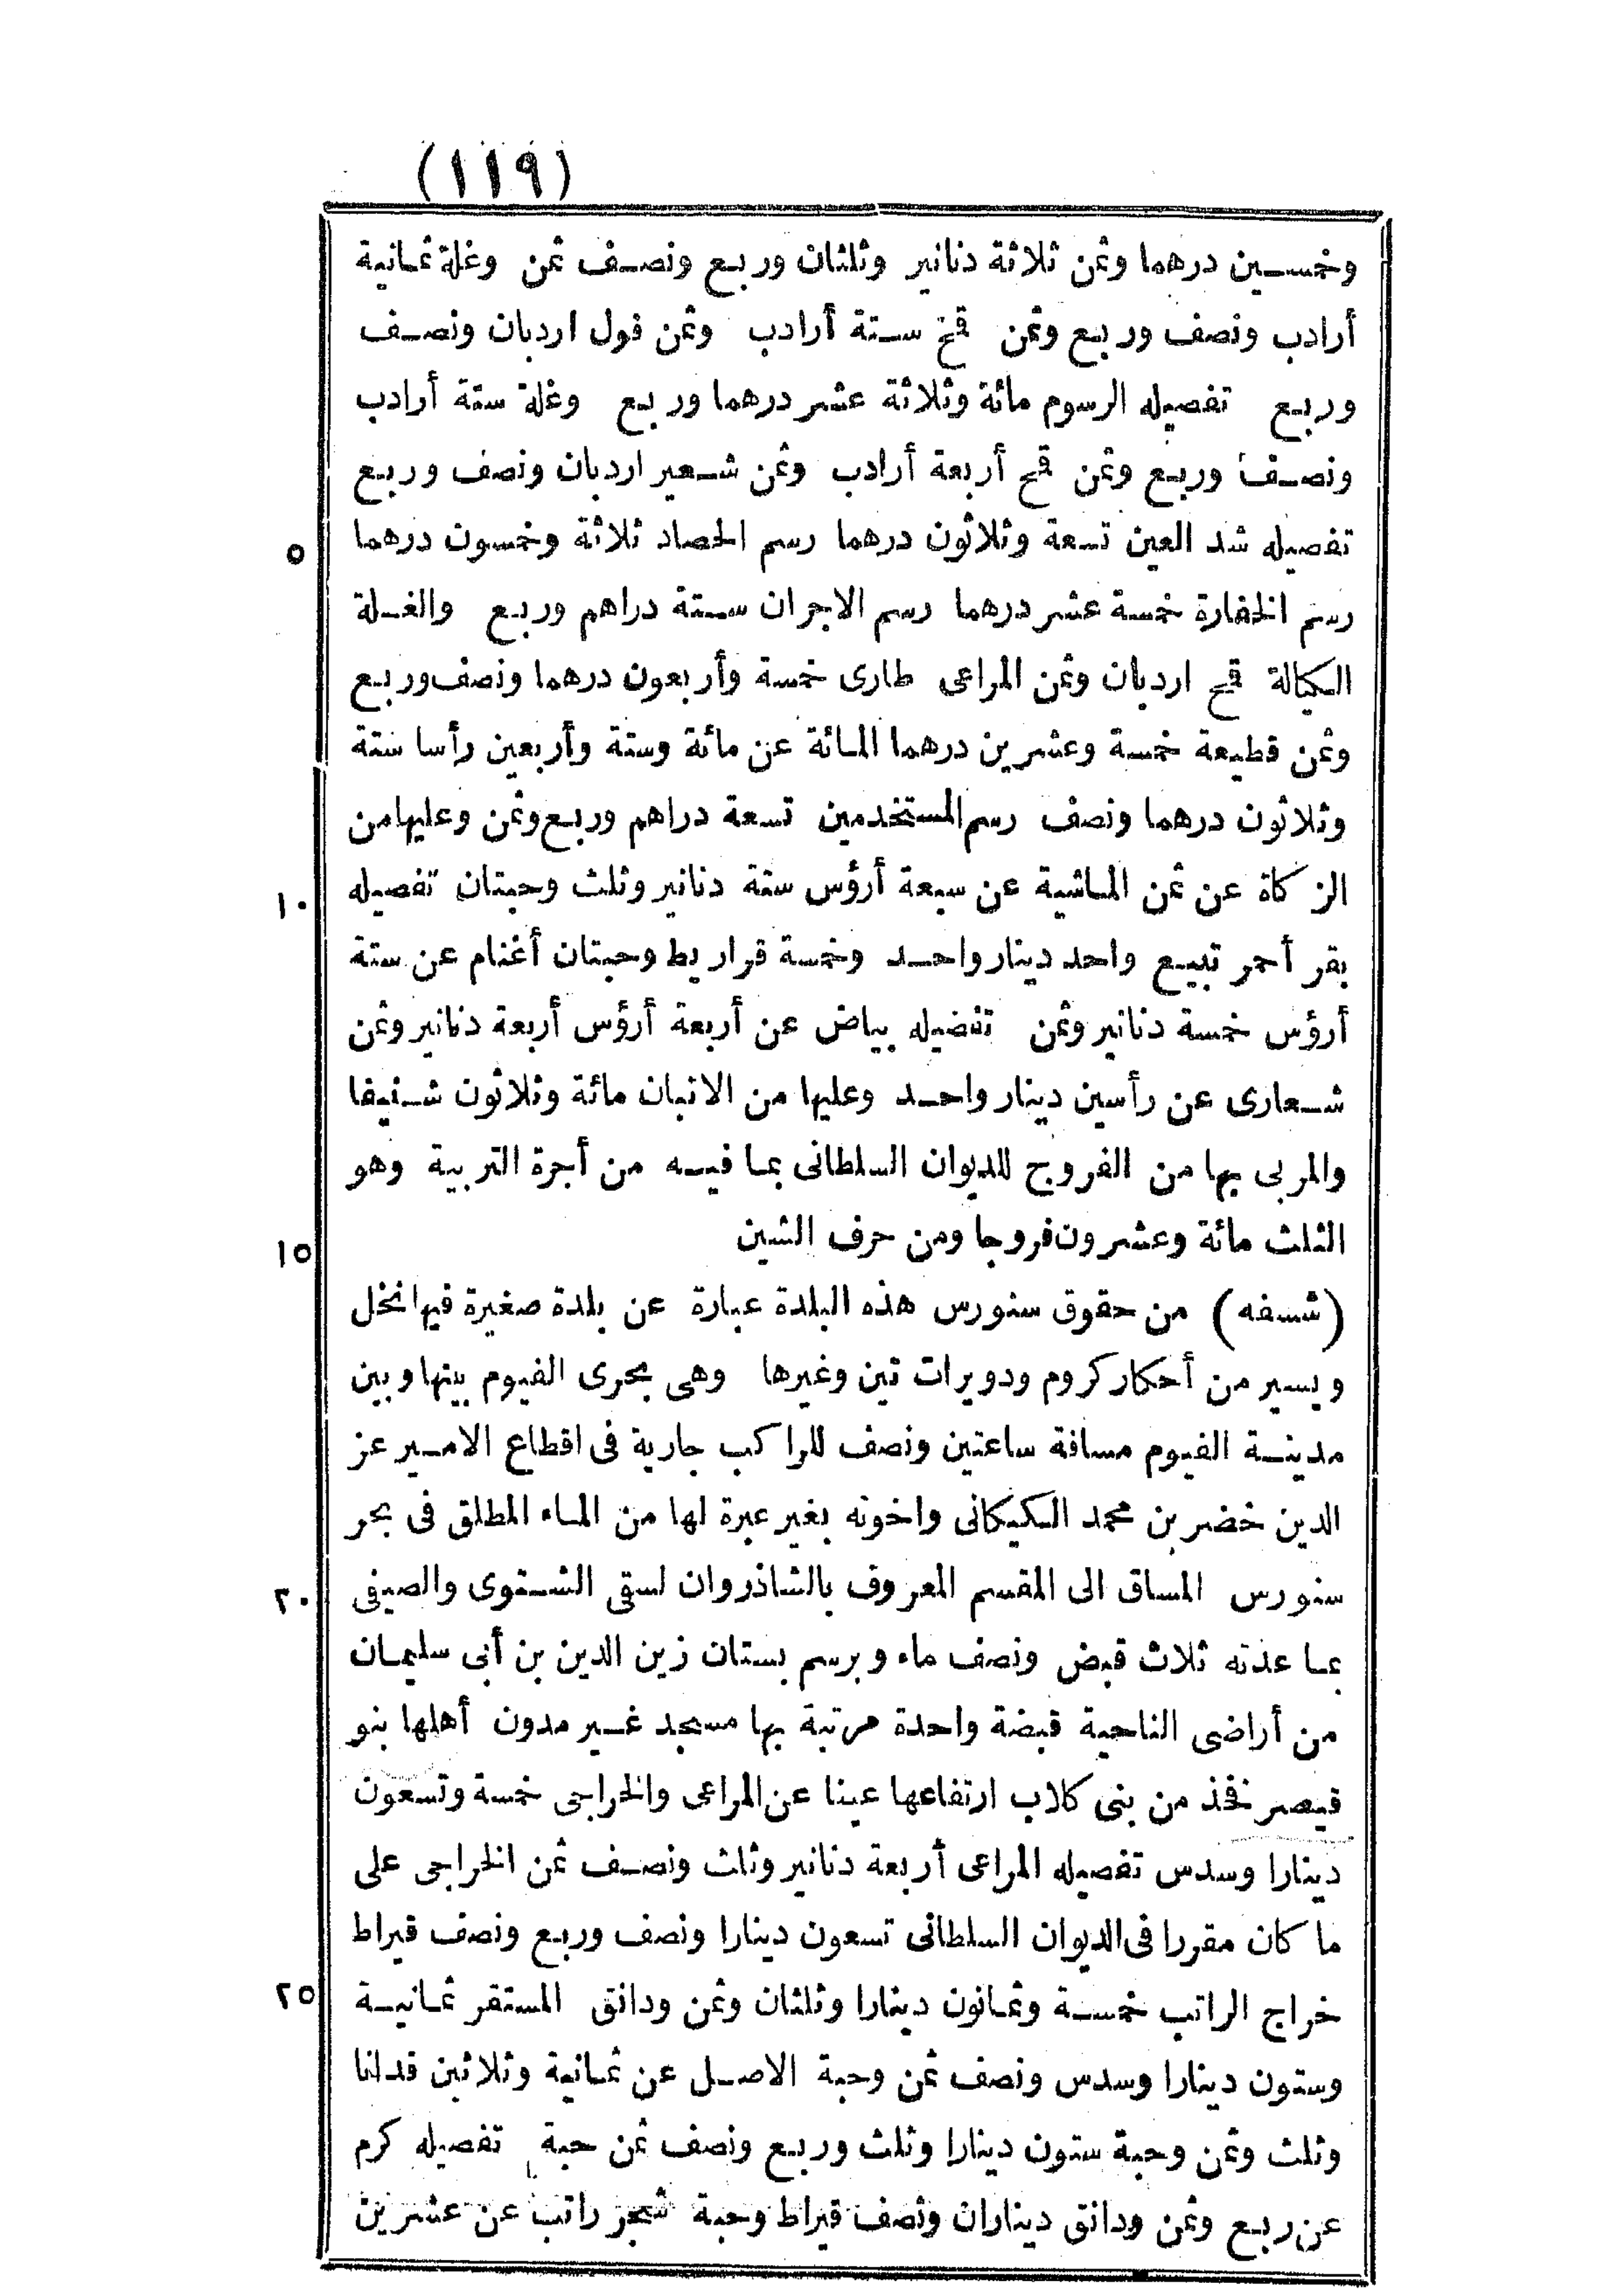 (١١٩)
وخمسين درهما وثمن ثلاثة دنانير وثلثان وربع ونصف ثمن وغلة ثمانية
أرادب ونصف وربع وثمن قمح ستة أرادب وثمن فول اردبان ونصف
وربع تفصيله الرسوم مائة وثلاثة عشر درهما وربع وغلة ستة أرادب
ونصف وربع وثمن قمح أربعة أرادب وثمن شعير اردبان ونصف وربع
٥ تفصيله شد العين تسعة وثلاثون درهما رسم الحصاد ثلاثة وخمسون درهما
رسم الخفارة خمسة عشر درهما رسم الاجران ستة دراهم وربع والغلة
الكيالة قمح اردبان وثمن المراعى طارى خمسة وأربعون درهما ونصف وربع
وثمن قطيعة خمسة وعشرين درهما المائة عن مائة وستة وأربعين رأسا ستة
وثلاثون درهما ونصف رسم المستخدمين تسعة دراهم وربع وثمن وعليها من
١٠ الزكاة عن ثمن الماشية عن سبعة أرؤس ستة دنانير وثلث وحبتان تفصيله
بقر أحمر تبيع واحد دينار واحد وخمسة قراريط وحبتان أغنام عن ستة
أرؤس خمسة دنانير وثمن تفضيله بياض عن أربعة أرؤس أربعة دنانير وثمن
شعارى عن رأسين دينار واحد وعليها من الاتبان مائة وثلاثون شنيفا
والمربى بها من الفروج للديوان السلطانى بما فيه من أجرة التربية وهو
١٥ الثلث مائة وعشرون فروجا ومن حرف الشين
(شسفه) من حقوق سنورس هذه البلدة عبارة عن بلدة صغيرة فيها نخل
ويسير من أحكار كروم ودويرات تين وغيرها وهى بحرى الفيوم بينها وبين
مدينة الفيوم مسافة ساعتين ونصف للراكب جارية فى اقطاع الامير عز
الدين خضر بن محمد الكيكانى واخوته بغير عبرة لها من الماء المطلق فى بحر
٢٠ سنورس المساق الى المقسم المعروف بالشاذروان لسقى الشتوى والصيفى
بما عدته ثلاث قبض ونصف ماء وبرسم بستان زين الدين بن أبى سليمان
من أراضى الناحية قبضة واحدة مرتبة بها مسجد غير مدون أهلها بنو
قيصر فخذ من بنى كلاب ارتفاعها عينا عن المراعى والخراجى خمسة وتسعون
دينارا وسدس تفصيله المراعى أربعة دنانير وثلث ونصف ثمن الخراجى على
ما كان مقررا فى الديوان السلطانى تسعون دينارا ونصف وربع ونصف قيراط
٢٥ خراج الراتب خمسة وثمانون دينارا وثلثان وثمن ودانق المستقر ثمانية
وستون دينارا وسدس ونصف ثمن وحبة الاصل عن ثمانية وثلاثين فدانا
وثلث وثمن وحبة ستون دينارا وثلث وربع ونصف ثمن حبة تفصيله كرم
عن ربع وثمن ودانق ديناران ونصف قيراط وحبة شجر راتب عن عشرين